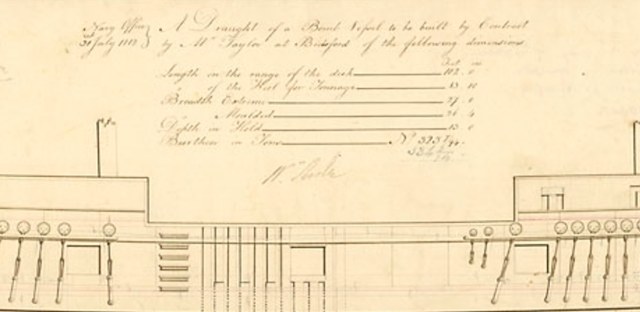 Navy Office A Draught of a Bomb Vessel to be built by Contract
31st July 1812 by Mr Taylor at Bideford of the following dimensions
Feet in
Length in the range of the deck 102..0
of the Keel for Tonnage 83..10
Breadth Extreme 27..0
Moulded 26..
Depth in Hold 13..0
Burthen in Tons No 325
Wm